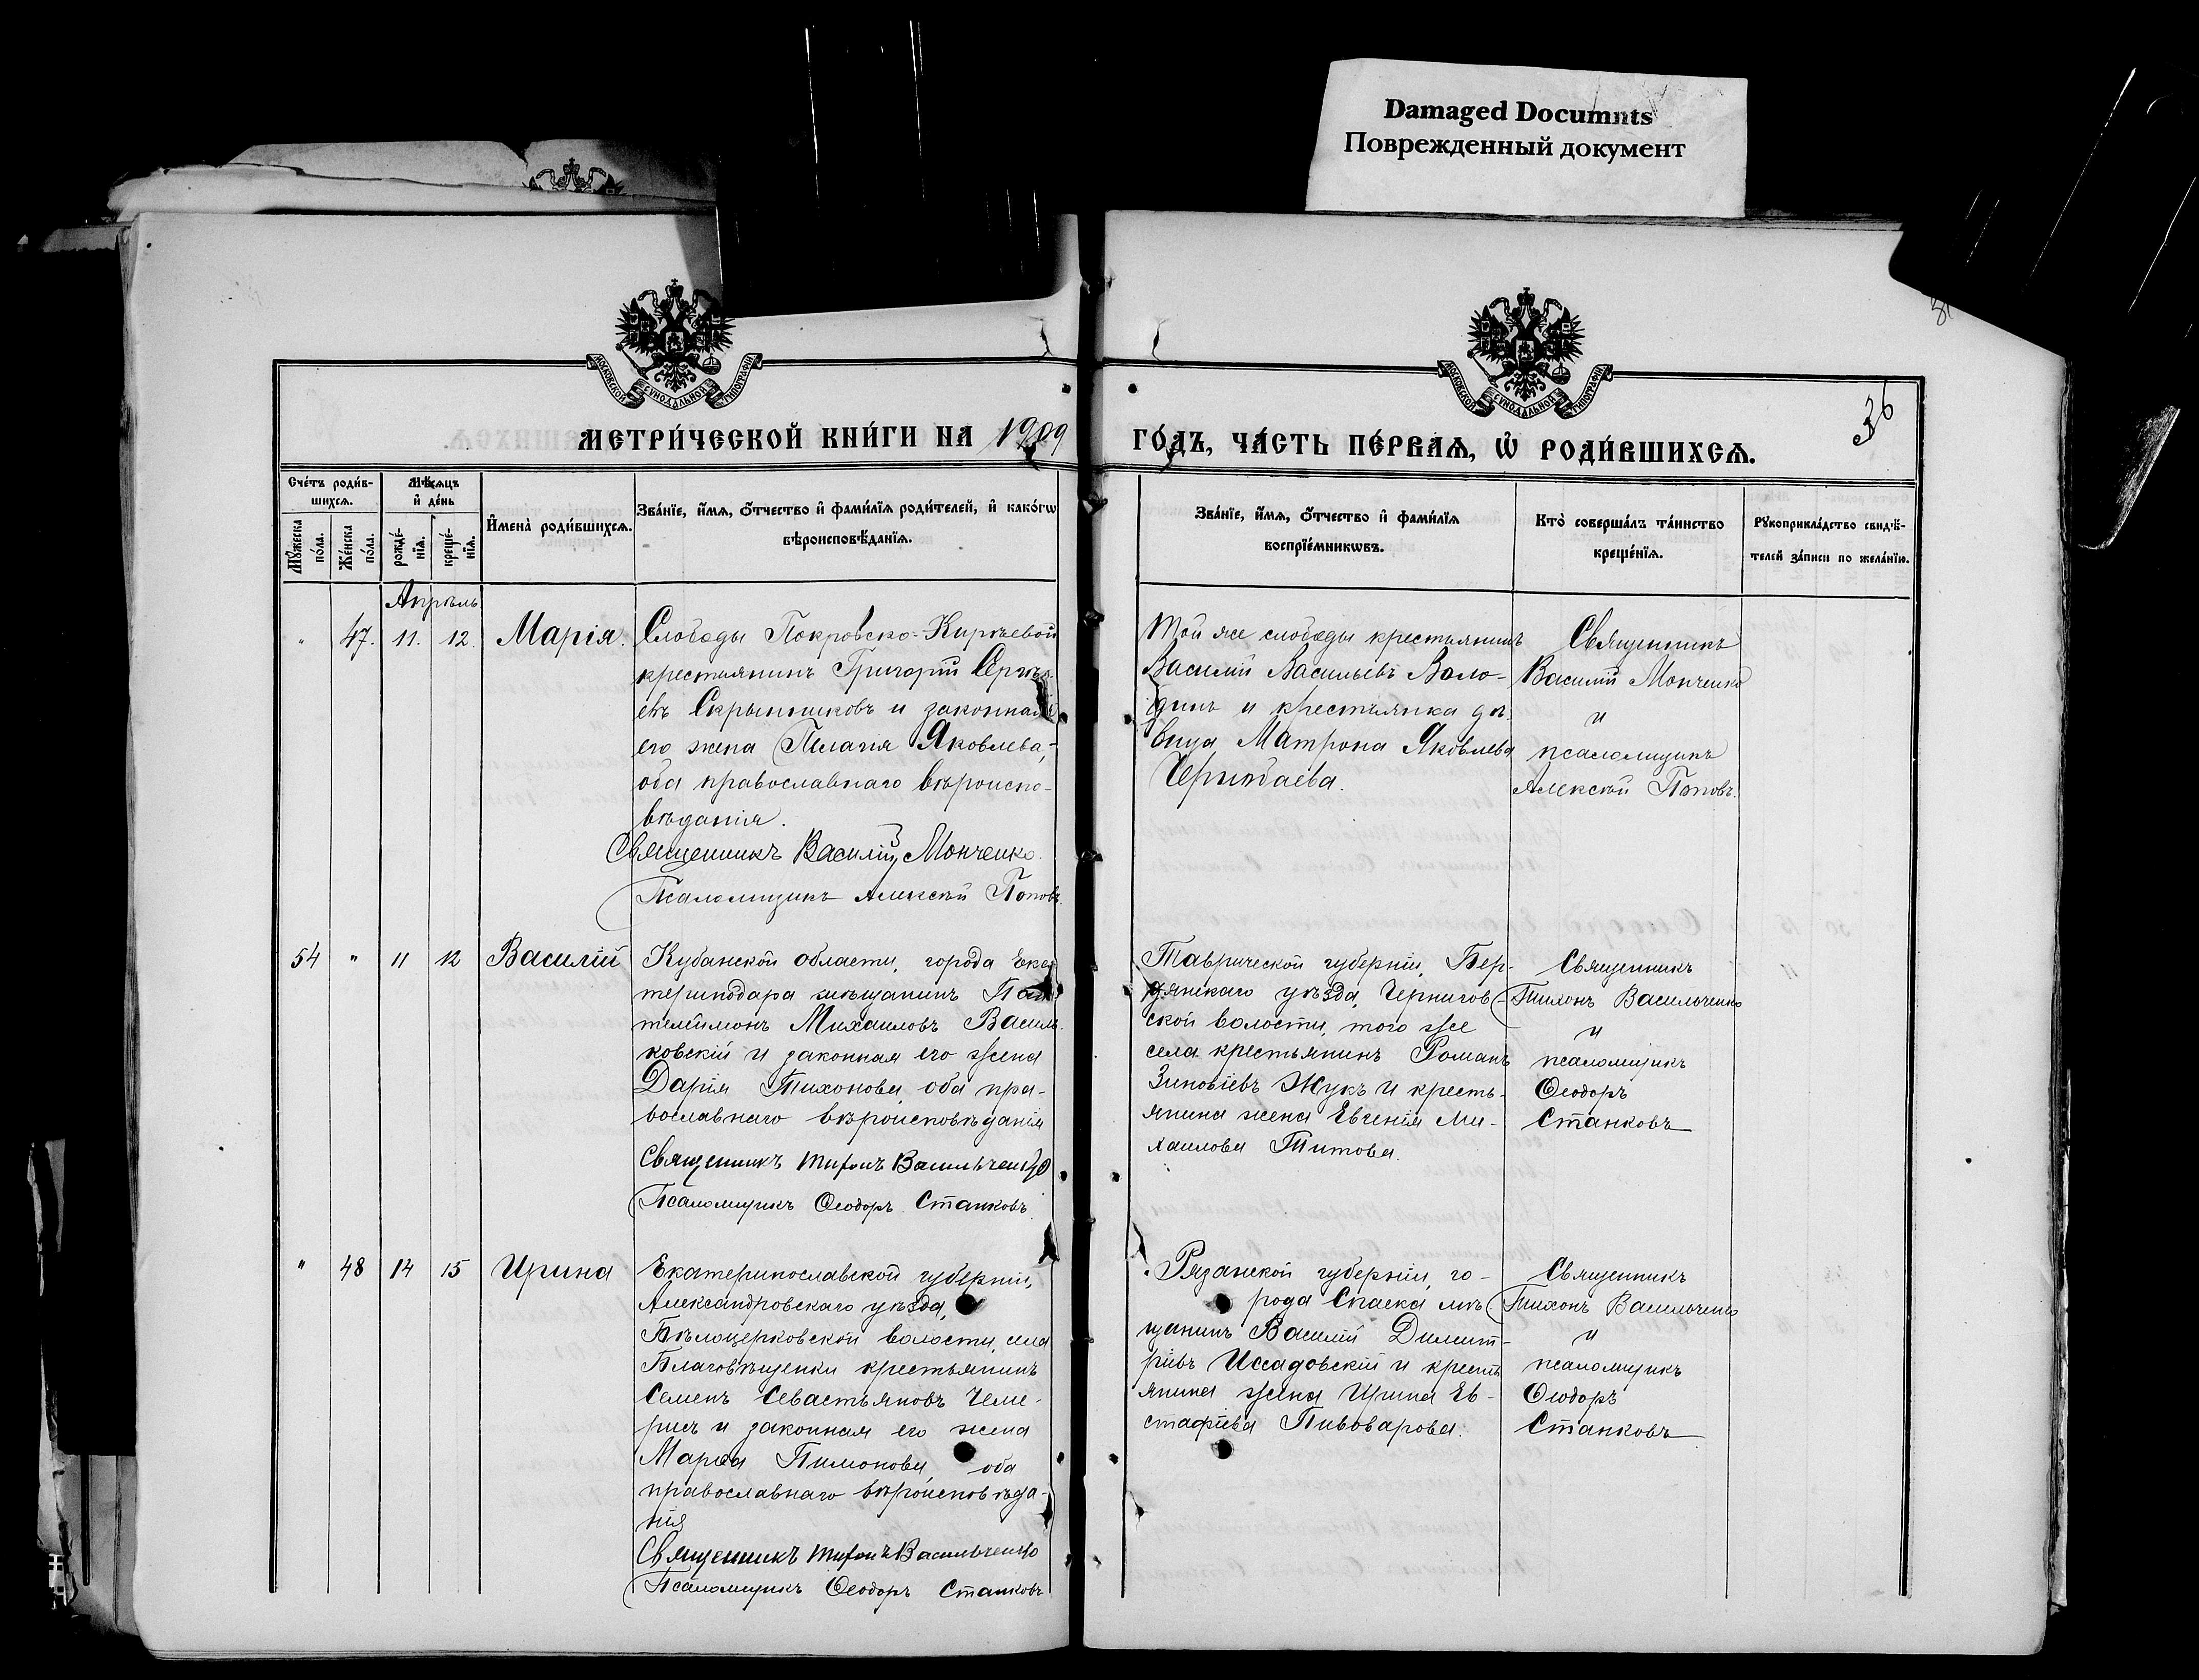 Damaged Documnts
Поврежденный документ
МОСКОВСКОЙ СѴНОДАЛЬНОЙ ТИПОГРАФІИ
МОСКОВСКОЙ СѴНОДАЛЬНОЙ ТИПОГРАФІИ
36
МЕТРИ́ЧЕСКОЙ КНИ́ГИ НА 1909
ГО́ДЪ, ЧА́СТЬ ПЕ́РВАѦ, Ѡ҆ РОДИ́ВШИХСѦ.
Сче́тъ роди́в-
шихсѧ.
Мѣ́сѧцъ
и҆ де́нь
Мꙋ́жеска
по́ла.
Же́нска
по́ла.
рожде́-
нїѧ.
креще́-
нїѧ.
И҆мена̀ роди́вшихсѧ.
Зва́нїе, и҆́мѧ, ѻ҆́тчество и҆ фами́лїѧ роди́телей, и҆ како́гѡ
вѣроисповѣ́данїѧ.
Зва́нїе, и҆́мѧ, ѻ҆́тчество и҆ фами́лїѧ
воспрїе́мникѡвъ.
Кто̀ соверша́лъ та́инство
креще́нїѧ.
Рꙋкоприкла́дство свидѣ́-
телей за́писи по жела́нїю.
Апрѣль
" 47. 11. 12. Марія.
Слободы Покровско-Кирѣевой
крестьянинъ Григорій Сергѣ-
евъ Скрынниковъ и законная
его жена Пелагія Яковлева,
оба православнаго вѣроиспо-
вѣданія.
Священникъ Василій Монченко.
Псаломщикъ Алексѣй Поповъ
Той же слободы крестьянинъ
Василій Васильевъ Воло-
динъ и крестьянка дѣ-
вица Матрона Яковлева
Священникъ
Василій Монченко
и
псаломщикъ
Алексѣй Поповъ.
54 " 11 12 Василій
Кубанской области, города Ека-
теринодара мѣщанинъ Пан-
телеймонъ Михаиловъ Василь-
ковскій и законная его жена
Дарія Тихонова, оба пра-
вославнаго вѣроисповѣданія
Священникъ Тихонъ Васильченко
Псаломщикъ Ѳеодоръ Станковъ.
Таврической губерніи, Бер-
дянскаго уѣзда, Чернигов-
ской волости, того же
села крестьянинъ Романъ
Зиновіевъ Жукъ и кресть-
янина жена Евгенія Ми-
хаилова Титова.
Священникъ
Тихонъ Васильченко
и
псаломщикъ
Ѳеодоръ
Станковъ
" 48 14 15 Ирина
Екатеринославской губерніи,
Александровскаго уѣзда,
Бѣлоцерковской волости, села
Благовѣщенки крестьянинъ
Семенъ Севастьяновъ Чеме-
рисъ и законная его жена
Марѳа Пимонова, оба
православнаго вѣроисповѣда-
нія
Священникъ Тихонъ Васильченко
Псаломщикъ Ѳеодоръ Станковъ
Рязанской губерніи, го-
рода Спаска мѣ-
щанинъ Василій Димит-
ріевъ Иссадовскій и кресть
янина жена Ирина Ев-
стафіева Пивоварова.
Священникъ
Тихонъ Васильченко
и
псаломщикъ
Ѳеодоръ
Станковъ